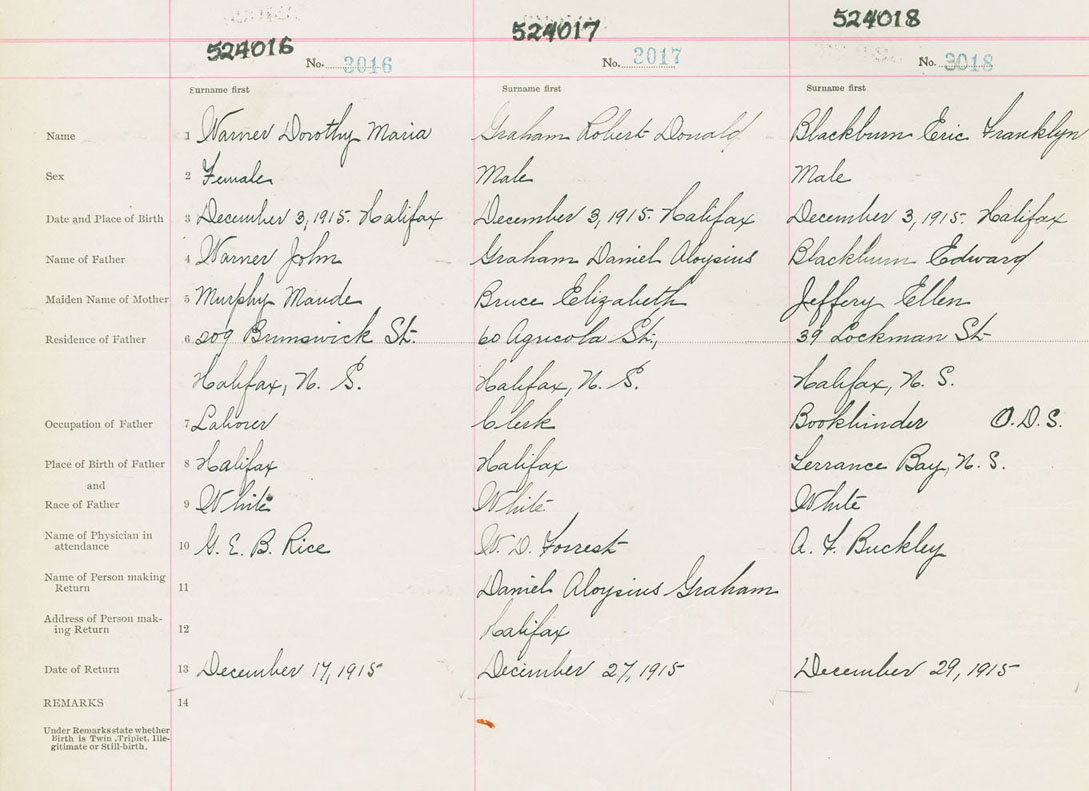 524016 524017 524018
No. 3016 No. 3017 No. 3018
Surname first Surname first Surname first
Name 1 Warner Dorothy Maria Graham Robert Donald Blackburn Eric Franklyn
Sex 2 Female Male Male
Date and Place of Birth 3 December 3, 1915. Halifax December 3, 1915. Halifax December 3, 1915. Halifax
Name of Father 4 Warner John Graham Daniel Aloysius Blackburn Edward
Maiden Name of Mother 5 Murphy Maude Bruce Elizabeth Jeffery Ellen
Residence of Father 6 209 Brunswick St. 60 Agricola St., 39 Lockman St.
Halifax, N. S. Halifax, N. S. Halifax, N. S.
Occupation of Father 7 Laborer Clerk Bookbinder O.D.S.
Place of Birth of Father 8 Halifax Halifax Terrance Bay, N. S.
and
Race of Father 9 White White White
Name of Physician in
attendance 10 G. E. B. Rice W. D. Forrest A. F. Buckley
Name of Person making
Return 11 Daniel Aloysius Graham
Address of Person mak-
ing Return 12 Halifax
Date of Return 13 December 17, 1915 December 27, 1915 December 29, 1915
REMARKS 14
Under Remarks state whether
Birth is Twin, Triplet, Ille-
gitimate or Still-birth.